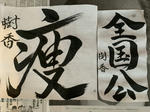 樹香
痩
全国公
樹香